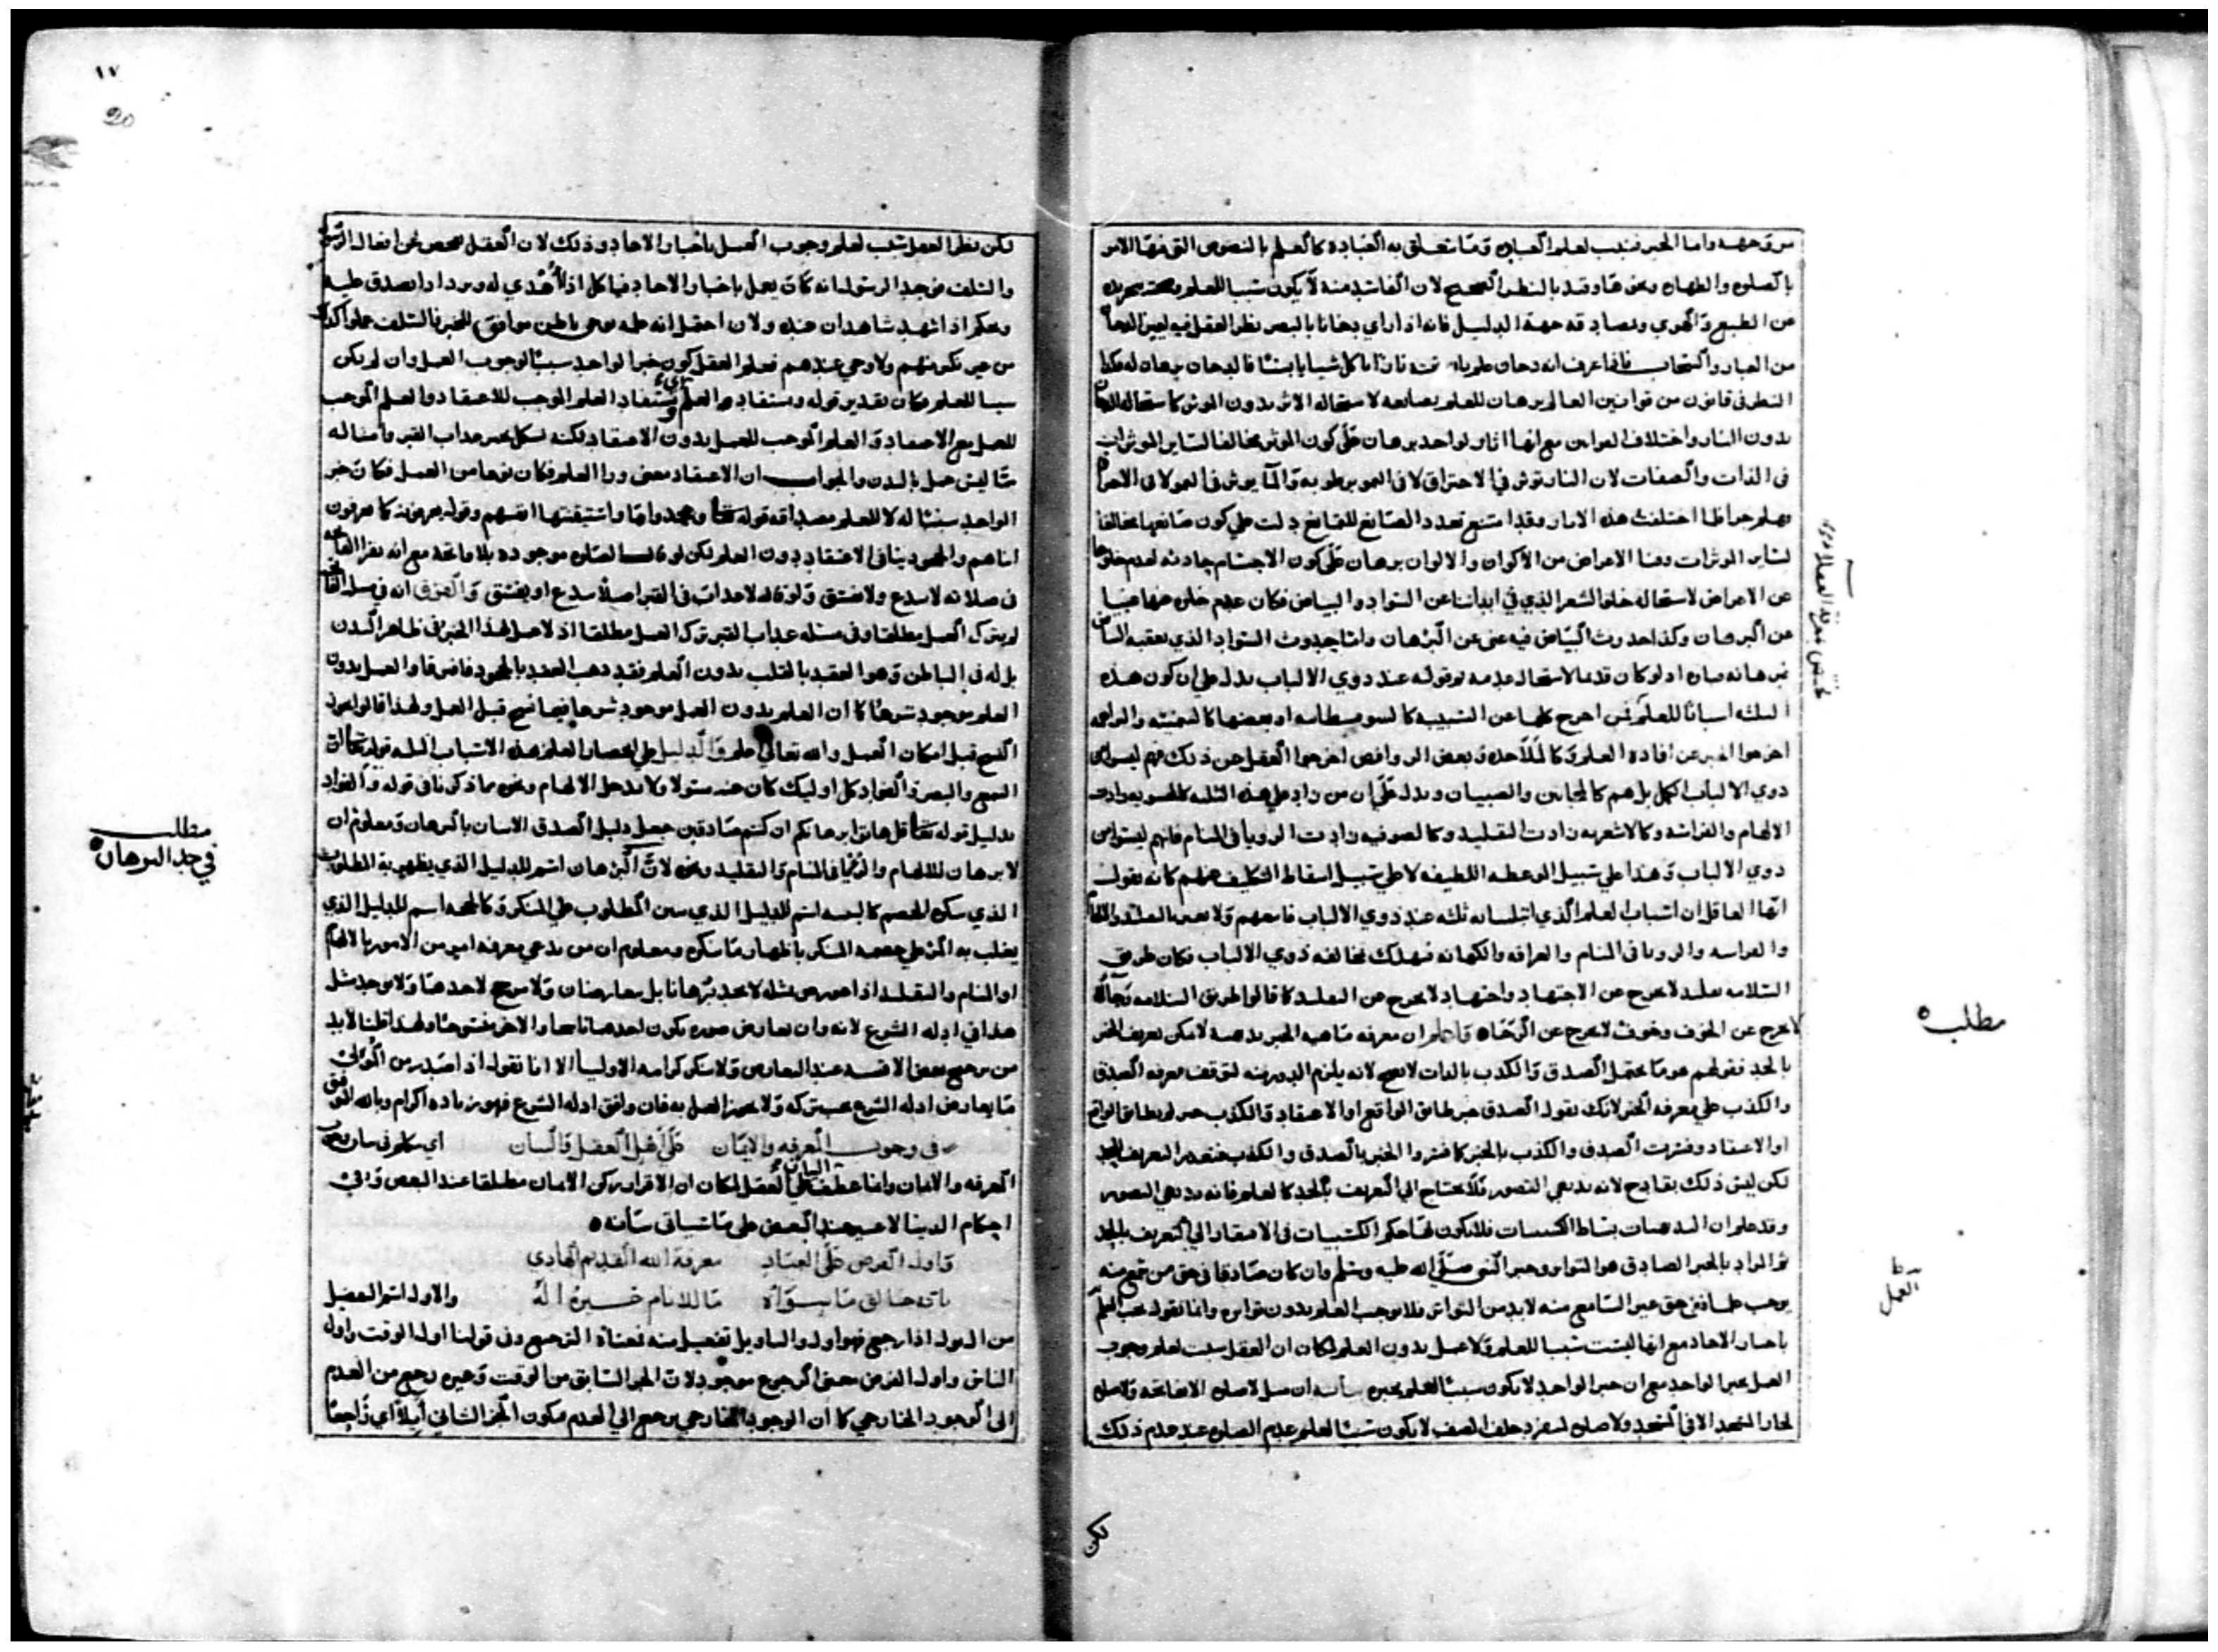 من وجهه واما الخبر فسبب لعلم العباده وما يتعلق به العباده كالعلم بالنصوص التي فيها الامر
بالصلوة والطهارة ونحوها وقيد بالنظر الصحيح لان الفاسد منه لا يكون سببا للعلم وصحته بتجريده
عن الطبع والهوي ومصادفه جهة الدليل فانه اذا راي دخانا بالبصر نظر العقل فيه ليميز الدخان
من الغبار والسحاب فاذا عرف انه دخان علم بان تحته نارا
النظر في قانون من قوانين العالم برهان للعلم بصانعه لاستحاله الاثر بدون الموثر كاستحاله الدخان
بدون النار واختلاف القوانين مع انها اثار لواحد برهان علي كون الموثر مخالفا لساير الموثرات
في الذات والصفات لان النار توثر في الاحتراق لا في النمو برطوبه والماء يوثر في النمو لا في الاحراق
فعلم حين اختلفت هذه الاثار وقد امتنع تعدد الصانع للتمانع دلت علي كون صانعها مخالفا
لساير الموثرات وما الاعراض من الاكوان والالوان برهان علي كون الاجسام حادثه لعدم خلوها
عن الاعراض لاستحاله خلو الشعر الذي في ابداننا عن السواد والبياض فكان عدم خلوه عنها غنيا
عن البرهان وكذا حدوث البياض فيه غني عن البرهان واما حدوث السواد الذي يعقبه البياض
فبرهانه بيان اذ لو كان قديما لاستحال عدمه ثم قوله عند ذوي الالباب يدل علي ان كون هذه
الثلثه اسبابا للعلم فمن اخرج كلها عن السببيه كالسوفسطائيه او بعضها كالسمنيه والبراهمه
اخرجوا الخبر عن افادة العلم وكالملاحده وبعض الروافض اخرجوا العقل عن ذلك فهم ليسوا من
ذوي الالباب الكمل بل هم كالمجانين والصبيان ويدل علي ان من زاد علي هذه الثلثه
الالهام والفراسه وكالاشعريه زادت التقليد وكالصوفيه زادت الرويا في المنام فانهم ليسوا من
ذوي الالباب وهذا علي سبيل الموعظه اللطيفه لا علي سبيل اسقاط التكليف عنهم كانه يقول
ايها العاقل ان اسباب العلم الذي ابتلينا به ثلثه عند ذوي الالباب فاتبعهم ولا تغتر بالتقليد والالهام
والفراسه والرويا في المنام والعرافه والكهانه فيهلك مخالفه ذوي الالباب فكان طريق
السلامه تقليد لا يخرج عن الاجتهاد واجتهاد لا يخرج عن التقليد كما قالوا طريق السلامه رجاء
لا يخرج عن الخوف وخوف لا يخرج عن الرجاء واعلم ان معرفه ماهيه الخبر بديهيه لا يمكن تعريف الخبر
بالحد فقولهم هو ما يحتمل الصدق والكذب بالذات لا يصح لانه يلزم الدور منه لتوقف معرفه الصدق
والكذب علي معرفه الخبر لانك تقول الصدق خبر طابق الواقع او الاعتقاد والكذب خبر لم يطابق الواقع
او الاعتقاد وفسرت الصدق والكذب بالخبر كما فسروا الخبر بالصدق والكذب فتعذر التعريف بالحد
لكن ليس ذلك بقادح لانه بديهي التصور فلا يحتاج الي التعريف بالحد كالعلم فانه بديهي التصور
وقد علم ان البديهيات بسائط الكسبيات فلا يكون لها حكم الكسبيات في الافتقار الي التعريف بالحد
ثم المراد بالخبر الصادق هو المتواتر وخبر النبي صلي الله عليه وسلم وان كان صادقا في حق من سمع منه
يوجب علما ففي حق غير السامع منه لا بد من التواتر فلا يوجب العلم بدون تواتره وانما نقول يجب العلم
باخبار الاحاد مع انها ليست سببا للعلم ولا عمل بدون العلم لمكان ان العقل سبب لعلم وجوب
العمل بخبر الواحد مع ان خبر الواحد لا يكون سببا لعلم مخبره بيانه ان مثل لا صلاة الا بفاتحه ولا صلاة
لجار المسجد الا في المسجد ولا صلاة لمنفرد خلف الصف لا يكون سببا لعلم عدم الصلوة عند عدم ذلك
لكن
مطلب
العمل
١٧
20
لكن نظر العقل سبب لعلم وجوب العمل باخبار الاحاد وذلك لان العقل تفحص عن افعال الرسول
والسلف فوجد الرسول انه كان يعمل باخبار الاحاد فياكل اذا اهدي له
ويحكم اذا شهد شاهدان عنده ولان احتمل انه علمه بوحي باطن موافق للخبر فالسلف عملوا كذلك
من غير نكير منهم ولا وحي عندهم فعلم العقل كون خبر الواحد سببا لوجوب العمل وان لم يكن
سببا للعلم فكان تقدير قوله ويستفاد العلم اي يستفاد العلم الموجب للاعتقاد والعلم الموجب
للعمل مع الاعتقاد والعلم الموجب للعمل بدون الاعتقاد لكنه يشكل بخبر عذاب القبر وامثاله
مما ليس عمل بالبدن والجواب ان الاعتقاد معني ورا العلم فكان نوعا من العمل فكان خبر
الواحد سببا له لا للعلم مصداقه قوله تعالي وجحدوا بها واستيقنتها انفسهم وقوله يعرفونه كما يعرفون
ابناهم والجحود ينافي الاعتقاد بدون العلم لكن لو قال الصلوة موجوده بلا فاتحة مع انه يقرا الفاتحه
في صلاته لا يبدع ولا يفسق ولو قال لا عذاب في القبر اصلا يبدع او يفسق والفرق انه في مسله الفاتحه
لم يترك العمل مطلقا وفي مسله عذاب القبر ترك العمل مطلقا اذ لا عمل لهذا الخبر في ظاهر البدن
بل له في الباطن وهو العقد بالقلب بدون العلم فقد ذهب العقد بالجحود فافترقا والعمل بدون
العلم موجود شرعا كما ان العلم بدون العمل موجود شرعا فيما نسخ قبل العمل ولهذا قالوا يجوز
النسخ قبل امكان العمل والله تعالي اعلم والدليل علي انحصار العلم بهذه الاسباب الثلثه قوله تعالي ان
السمع والبصر والفواد كل اوليك كان عنه مسئولا ولا يدخل الالهام ونحوه مما ذكرنا في قوله والفواد
بدليل قوله تعالي قل هاتوا برهانكم ان كنتم صادقين جعل دليل الصدق الاتيان بالبرهان ومعلوم ان
لا برهان للالهام والرؤيا في المنام والتقليد ونحوه لان البرهان اسم للدليل الذي يظهر به المطلوب
الذي ينكره الخصم كالبينه اسم للدليل الذي يبين المطلوب علي المنكر وكالحجه اسم للدليل الذي
يغلب به المرء علي خصمه المنكر باظهار ما ينكره ومعلوم ان من يدعي معرفه امر من الامور بالالهام
او المنام والتقليد اذا عورض بمثله لا يجد برهانا بل يتعارضان ولا يرجح لاحدهما ولا يوجد مثل
هذا في ادله الشرع لانه وان تعارض صوره يكون احدهما ناسخا والاخر منسوخا ولهذا قلنا لا بد
من ترجيح بعض الاقيسه عند التعارض ولا ننكر كرامه الاوليا الا انا نقول اذا صدر من الولي
ما يعارض ادله الشرع يجب تركه ولا يجوز العمل به فان وافق ادله الشرع فهو زياده اكرام وبالله التوفيق
في وجوب المعرفه والايمان علي اهل العقل والبيان اي بيان وجوب
المعرفه والايمان وانما عطف البيان علي العقل لمكان ان الاقرار ركن الايمان مطلقا عند البعض وفي
احكام الدنيا لا غير عند البعض علي ما سياتي بيانه
واول الفرض علي العباد معرفة الله القديم الهادي
بانه خالق ما سواه ما للانام غيره اله والاول اسم التفضيل
من الاول اذا رجع فهو اول والتاويل تفعيل منه فمعناه الترجيع وفي قولنا اول الوقت واول
الناس واول الفرض معني الرجوع موجود لان الجزء السابق من الوقت وغيره رجع من العدم
الي الوجود الخارجي كما ان الوجود الخارجي يرجع الي العدم فيكون الجزء الثاني آيلا اي راجعا
مطلب
في حد البرهان